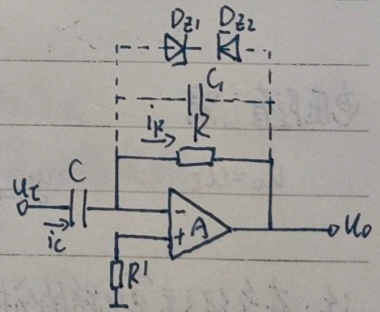 Dz1 Dz2
C1
iR R
uI C
iC
- + A
uo
R'